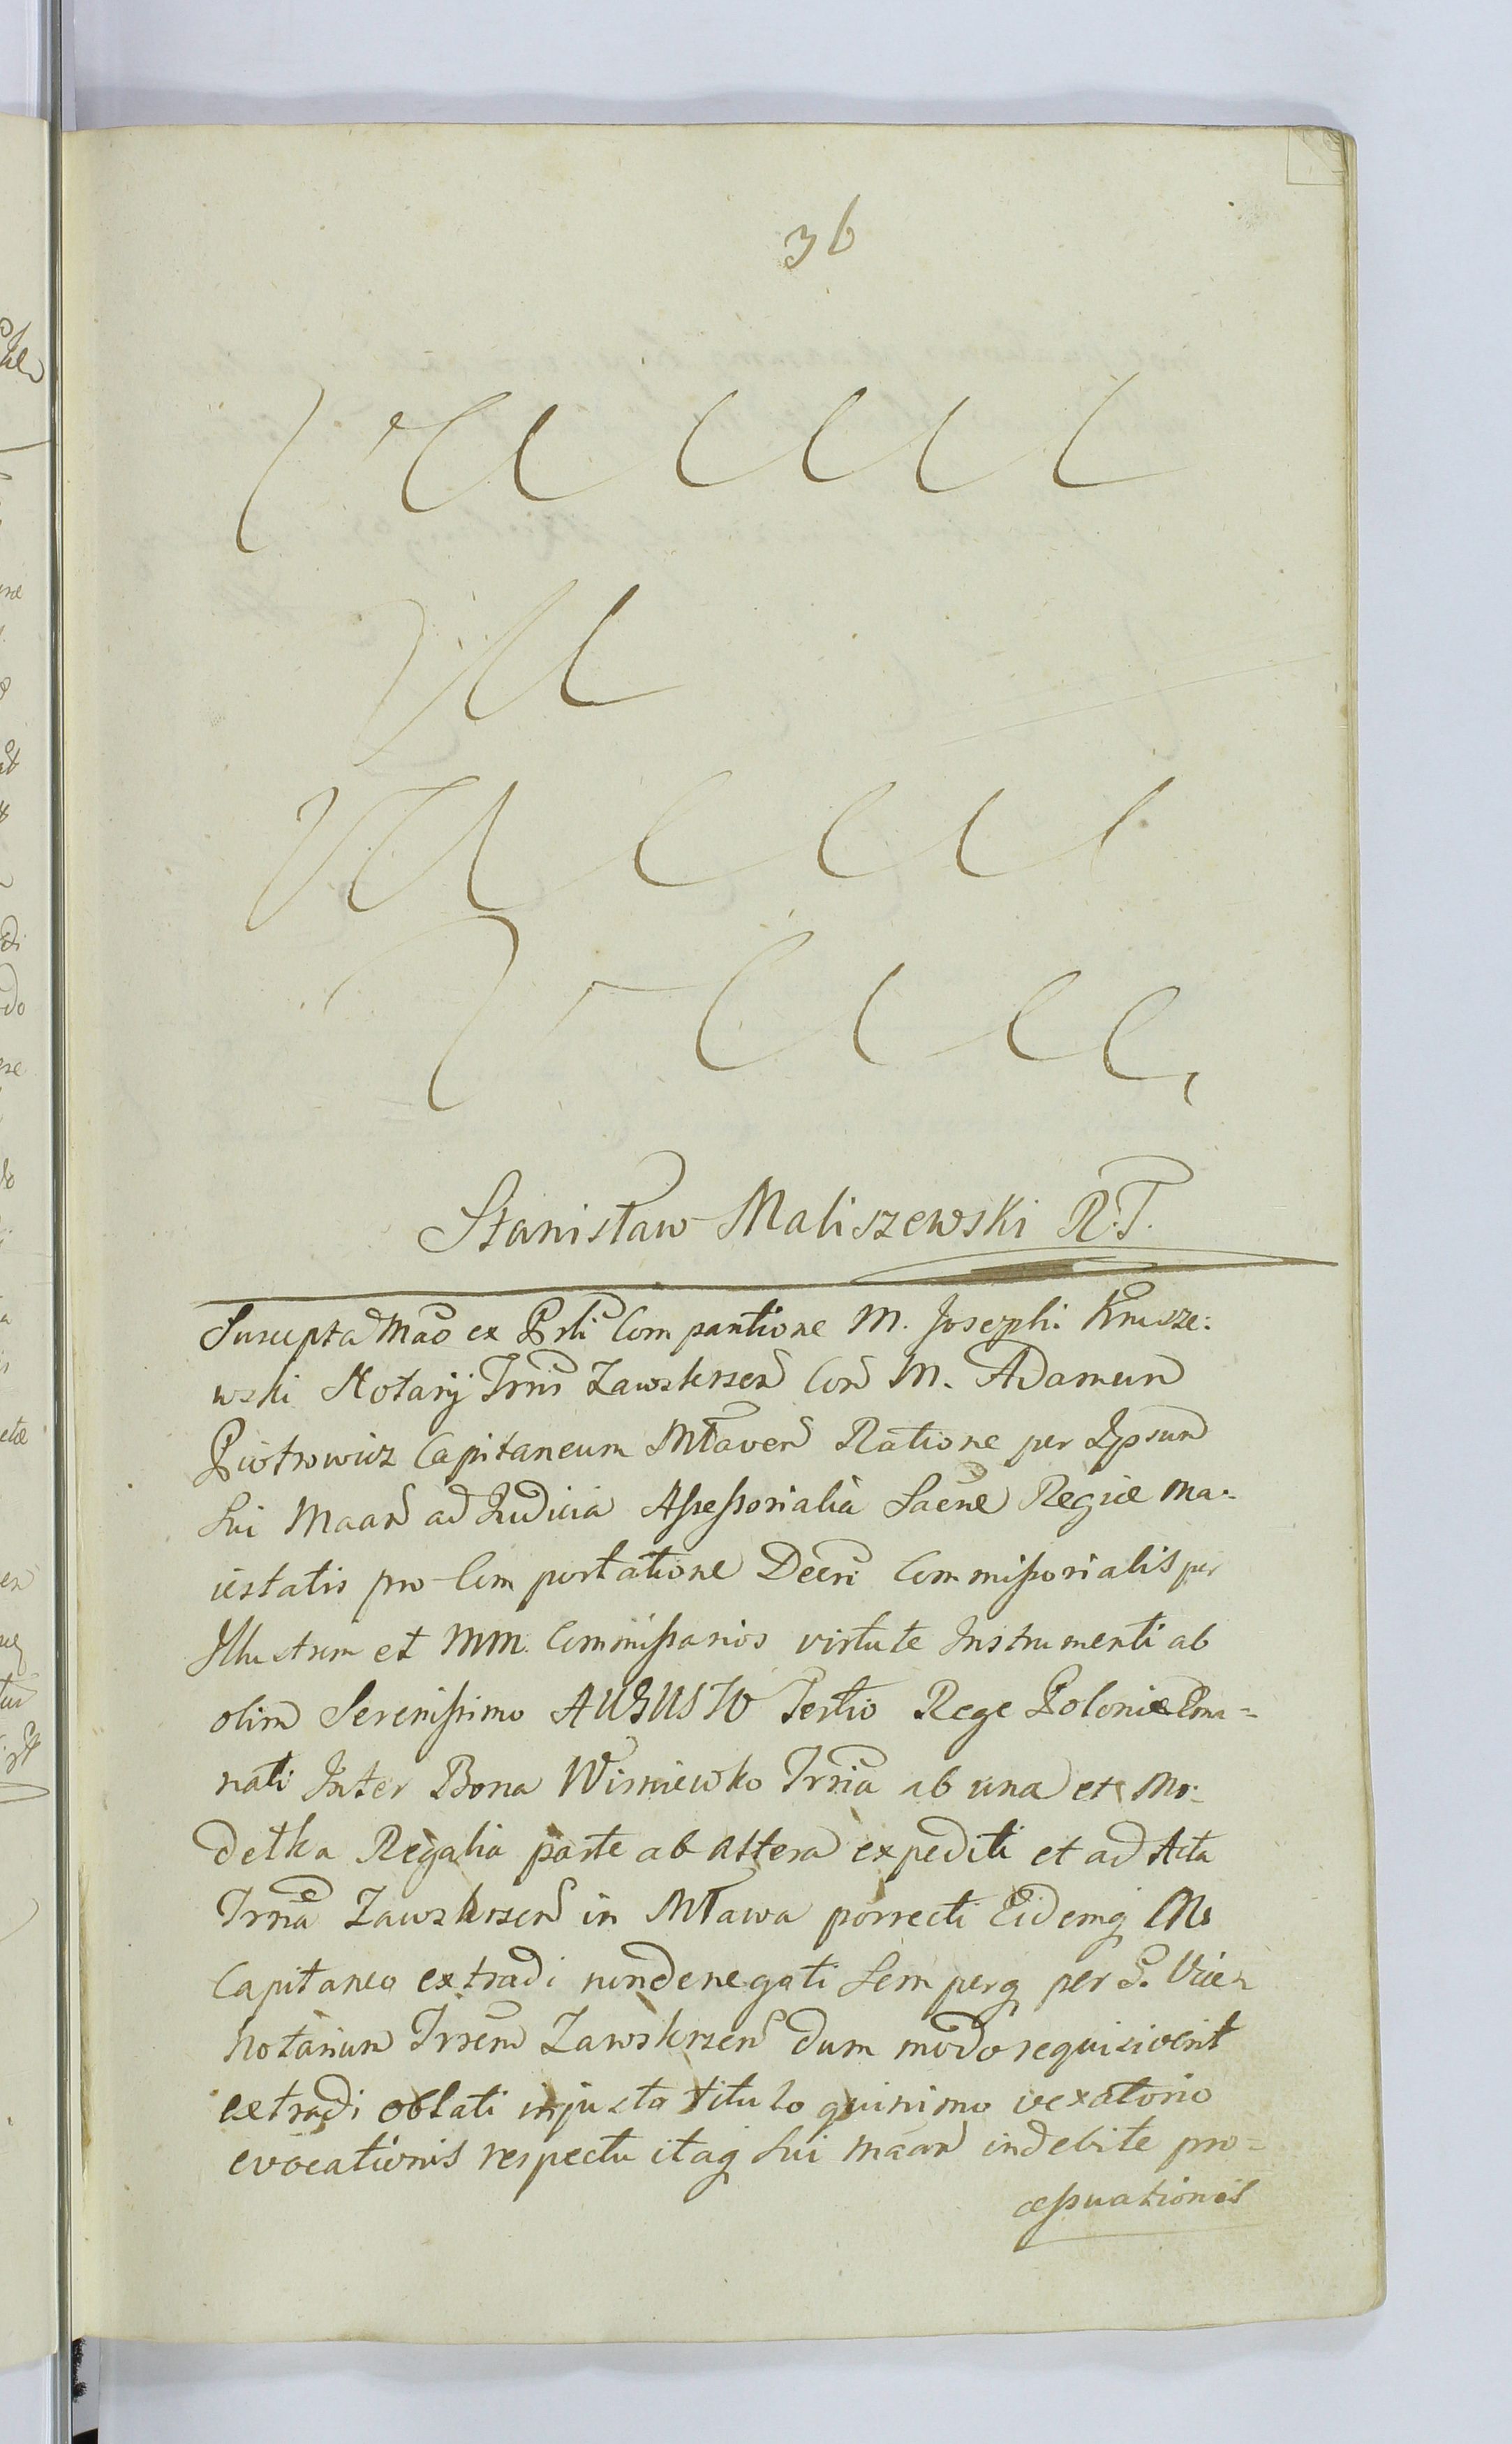 36
Stanisław Maliszewski R.T.
Suscepta Mão ex Prli Comparitione M. Josephi Krusze:
wski Notarij Trris Zawskrzen Con M. Adamum
Piotrowicz Capitaneum Mławen Ratione per Ipsum
Sui Maan ad Judicia Assessorialia Sacræ Regiæ Ma:
iestatis pro Comportatione Decri Commissorialis per
Illustrem et MM. Commissarios virtute Instrumenti ab
olim Serenissimo AUGUSTO Tertio Rege Poloniæ Ema=
nati Inter Bona Wisniewko Trria ab una et Mo:
detka Regalia parte ab altera expediti et ad Acta
Trria Zawskrzen in Mława porrecti Eidemq M
Capitaneo extradi nondenegati Semperq per G. Vice
Notarium Trrem Zawskrzen dum modo requisiverit
extradi oblati injusto titulo quinimo vexatorio
evocationis respectu itaq Sui maan indebite pro=